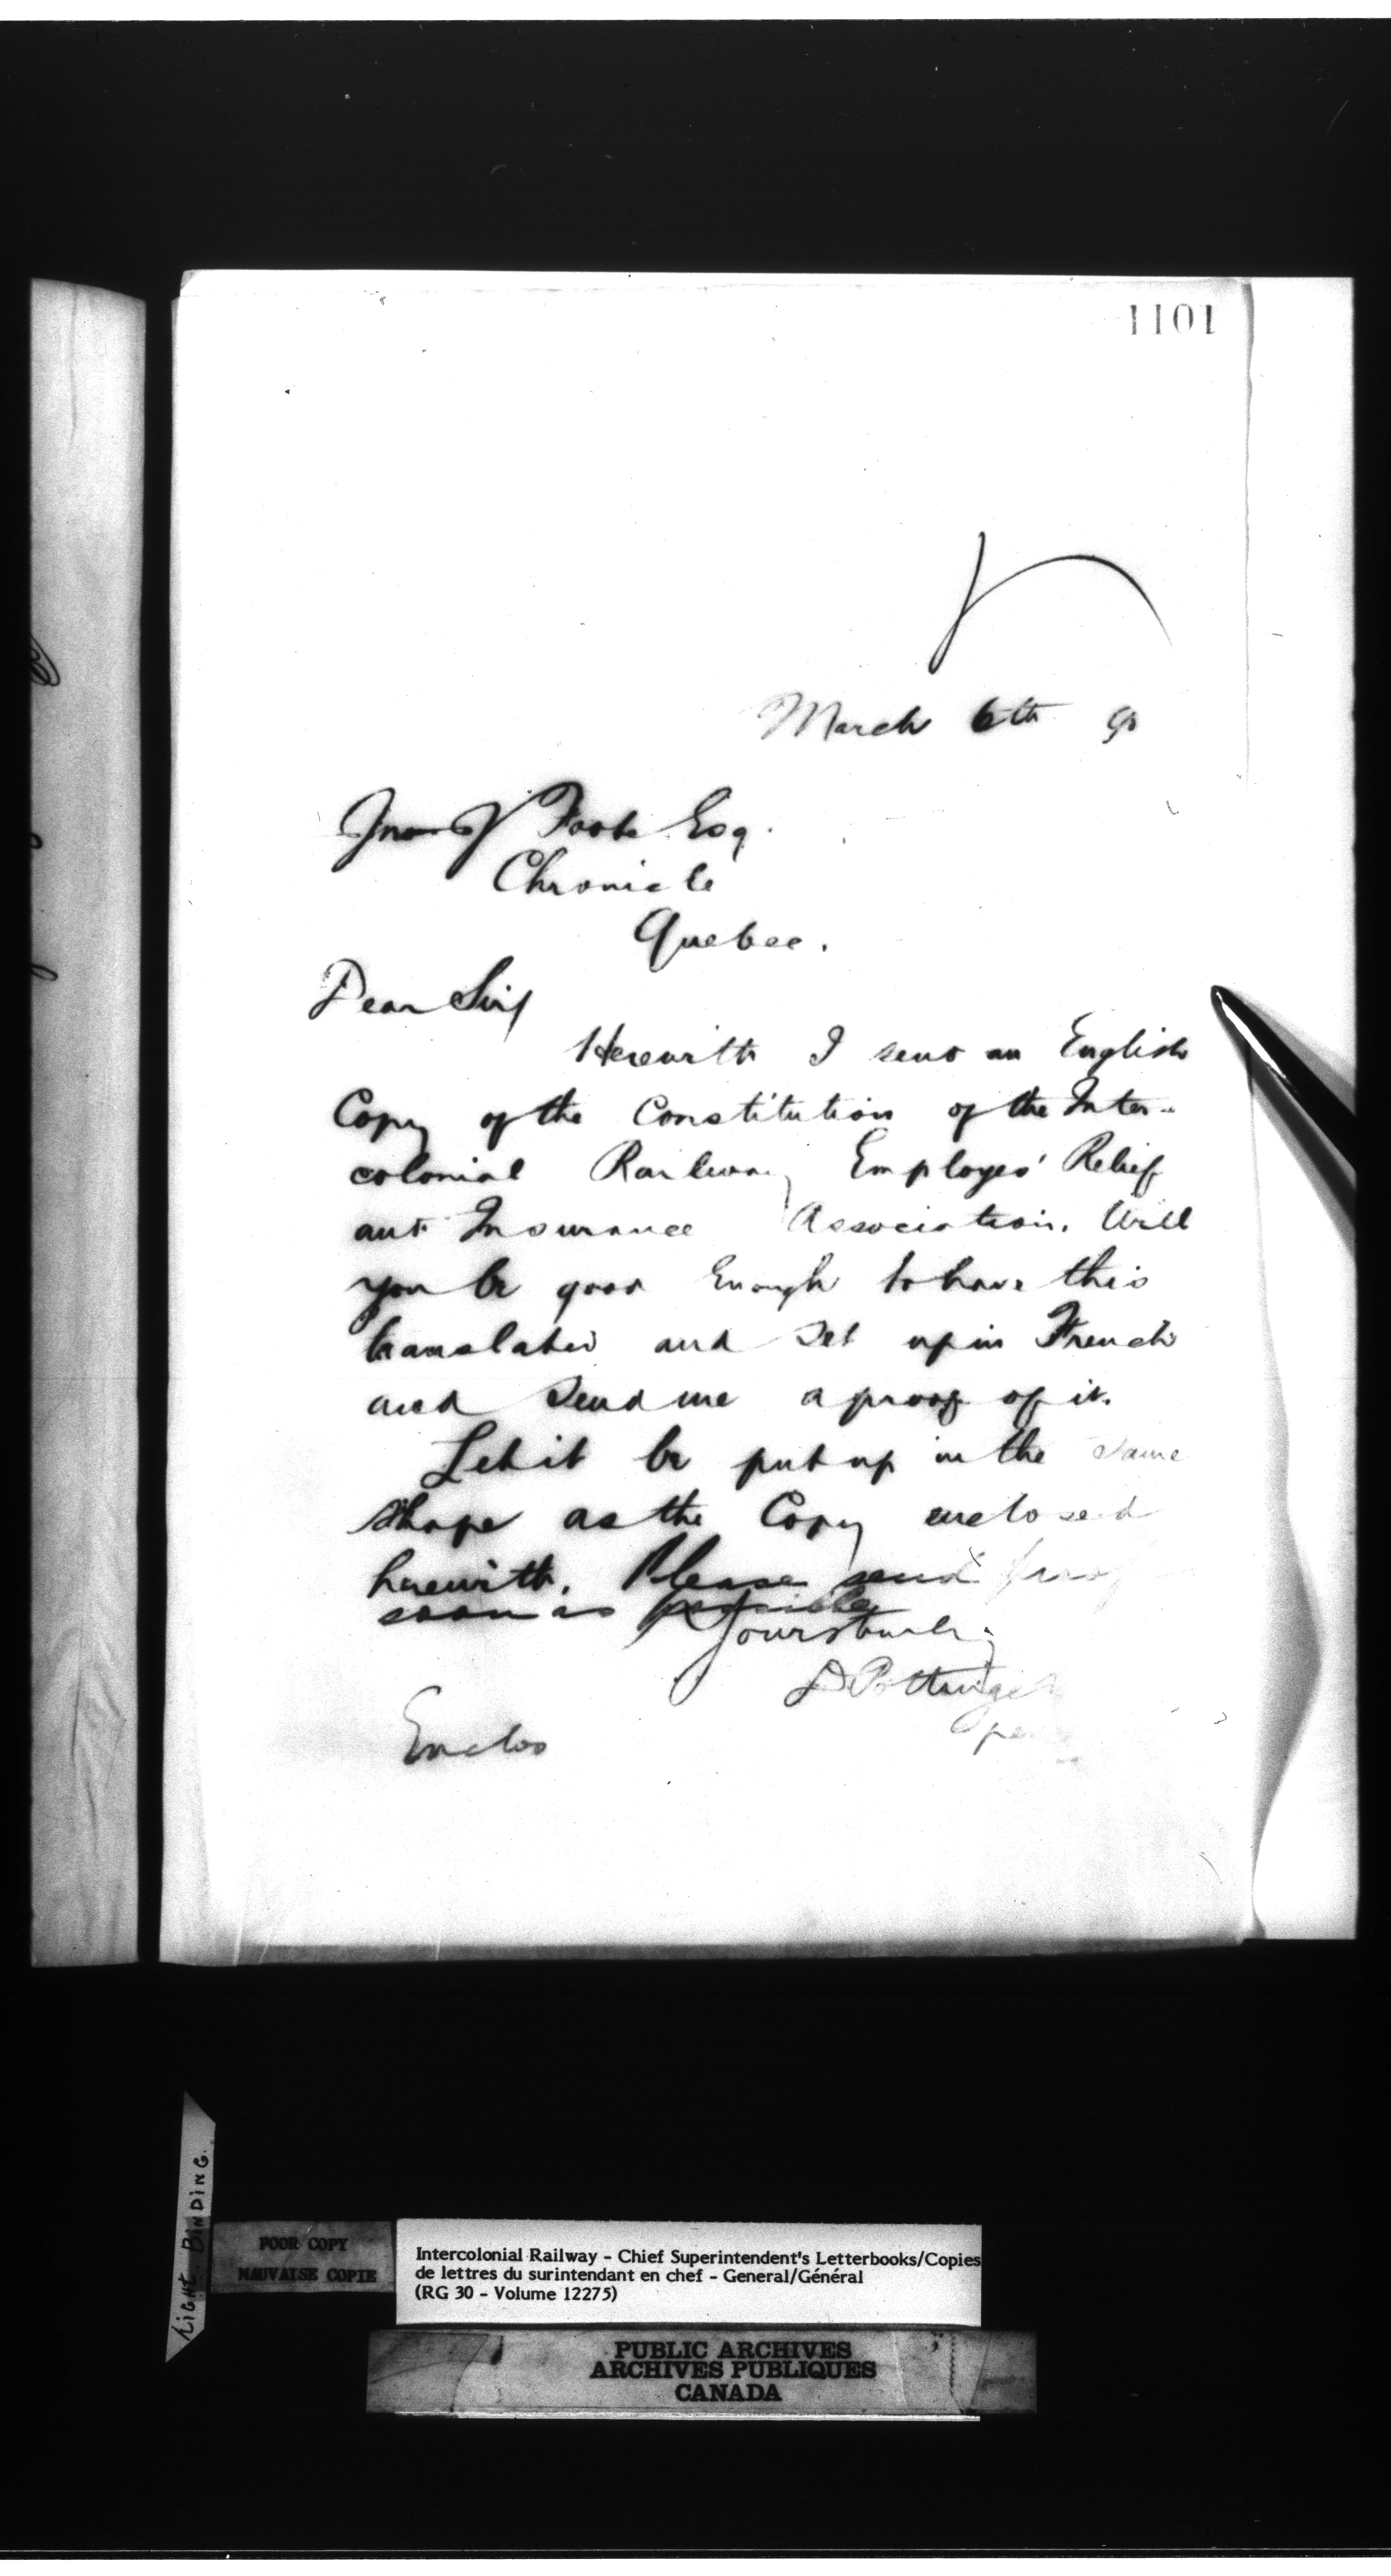 1101
March 6th 90
Jno J Foote Esq.
Chronicle
Quebec.
Dear Sir,
Herewith I send an English
Copy of the Constitution of the Inter-
colonial Railway Employes' Relief
and Insurance Association. Will
you be good enough to have this
translated and set up in French
and send me a proof of it.
Let it be put up in the same
shape as the Copy enclosed
herewith. Please send proof
soon as possible
Yours truly
D Pottinger
per
Enclos
TIGHT BINDING.
POOR COPY
MAUVAISE COPIE
Intercolonial Railway - Chief Superintendent's Letterbooks/Copies
de lettres du surintendant en chef - General/Général
(RG 30 - Volume 12275)
PUBLIC ARCHIVES
ARCHIVES PUBLIQUES
CANADA